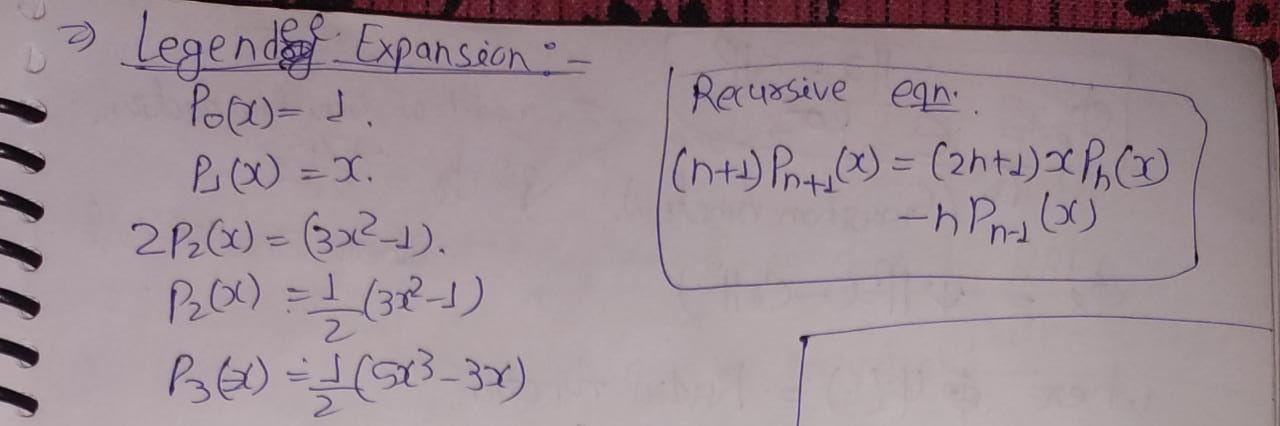 ⇒ Legendre Expansion :-
P₀(x) = 1.
P₁(x) = x.
2P₂(x) = (3x²-1).
P₂(x) = 1/2 (3x²-1)
P₃(x) = 1/2 (5x³-3x)
Recursive eqn.
(n+1)Pₙ₊₁(x) = (2n+1)xPₙ(x)
-nPₙ₋₁(x)